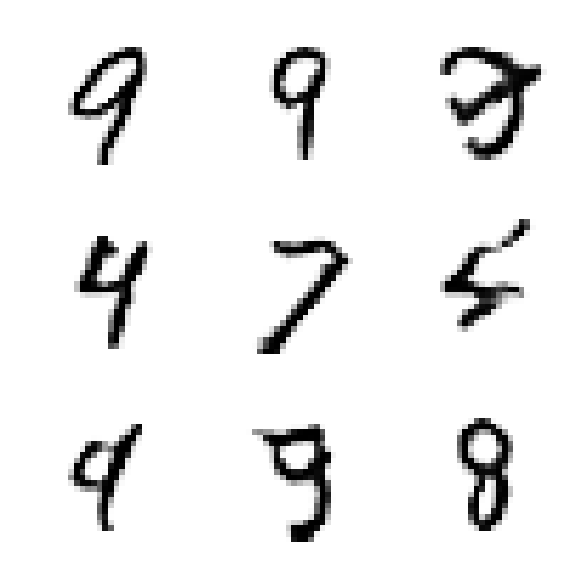 9 9
4 7 5
9 9 8